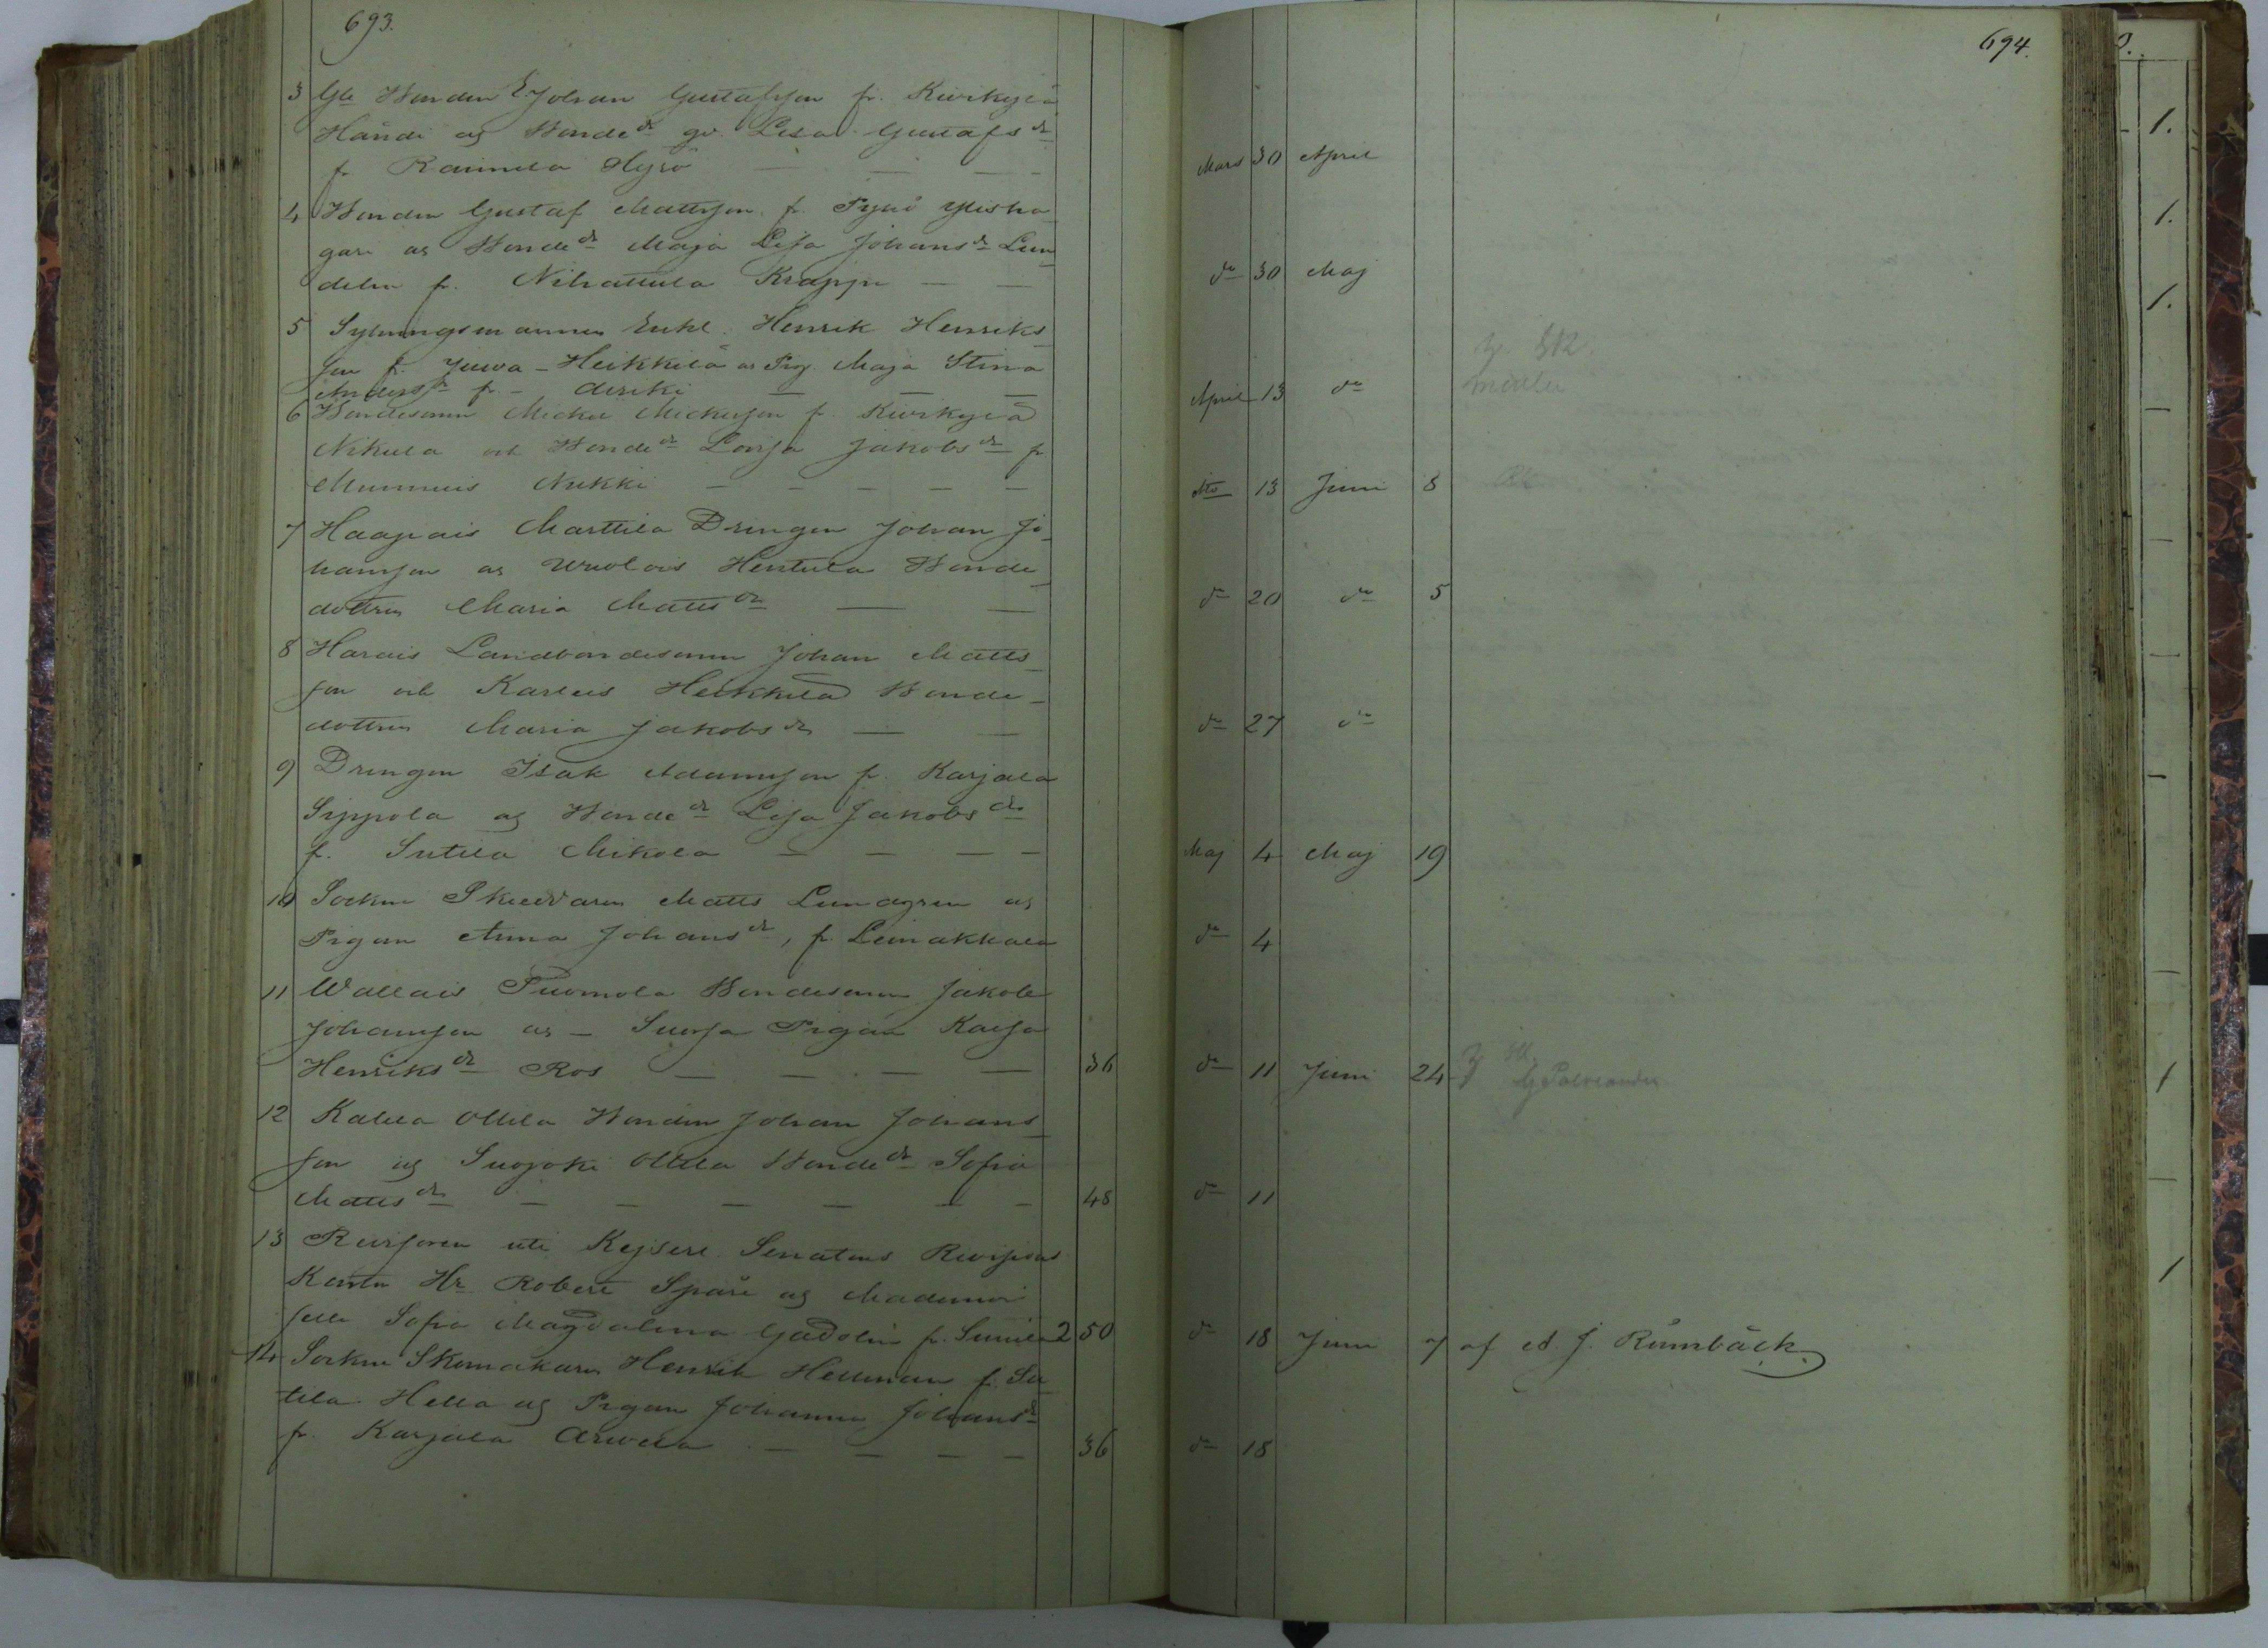 693.
3 Gle Bonden E. Johan Gustafsson fr. Kivikylä
Händi og Bonde dr gv. Lisa Gustafs dr
fr Raimela Hyrö — — —
4 Bonden Gustaf Mattsson fr. Pyhö Ylista
gare og Bonde dr Maja Lisa Johans dr Lun
delin fr. Nihattula Krappi — —
5 Sytningsmannen Enkl. Henrik Henriks
son fr. Juva - Heikkilä og Pig. Maja Stina
Anders dr fr. —
6 Bondesonen Mickel Mickelsson fr. Kivikylä
Nikula och Bonde dr Lovisa Jakobs dr fr
Mummis Nikki — — — — —
7 Haapais Marttila Drengen Johan Jo
hansson og Uvolais Hentula Bonde
dottren Maria Matts dr — —
8 Harais Landbondesonen Johan Matts
son och Karleis Heikkilä Bonde
dottren Maria Jakobs dr — —
9 Drengen Isak Adamsson fr. Karjala
Sippola og Bonde dr Lisa Jakobs dr
fr. Sutila Mikola — — — —
10 Sockne Skreddaren Matts Lundgren og
Pigan Anna Johans dr, fr. Leinakkala
11 Wallais Tuomola Bondesonen Jakob
Johansson og — Suorsa Pigan Kaisa
Henriks dr Ros — — — — 36
12 Kalela Ollila Bonden Johan Johans
son og Suojoki Ollila Bonde dr Sofia
Matts dr — — — — — — 48
13 Revisoren uti Kejserl. Senatens Revisions
Kontor Hr. Robert Spåre og Mademoi
selle Sofia Magdalena Gadolin fr. Sunila 2 50
14 Sockne Skomakaren Henrik Hellman fr. Su
tila Hella og Pigan Johanna Johans dr
fr. Karjala Arvela — — — — 36
694.
Mars 30 April
do 30 Maj
April 13 do
do 13 Juni 8
do 20 do 5
do 27 do
Maj 4 Maj 19
do 4
do 11 Juni 24
do 11
do 18 Juni 7 af A. J. Rönnbäck
do 18
1.
1.
1.
1
1